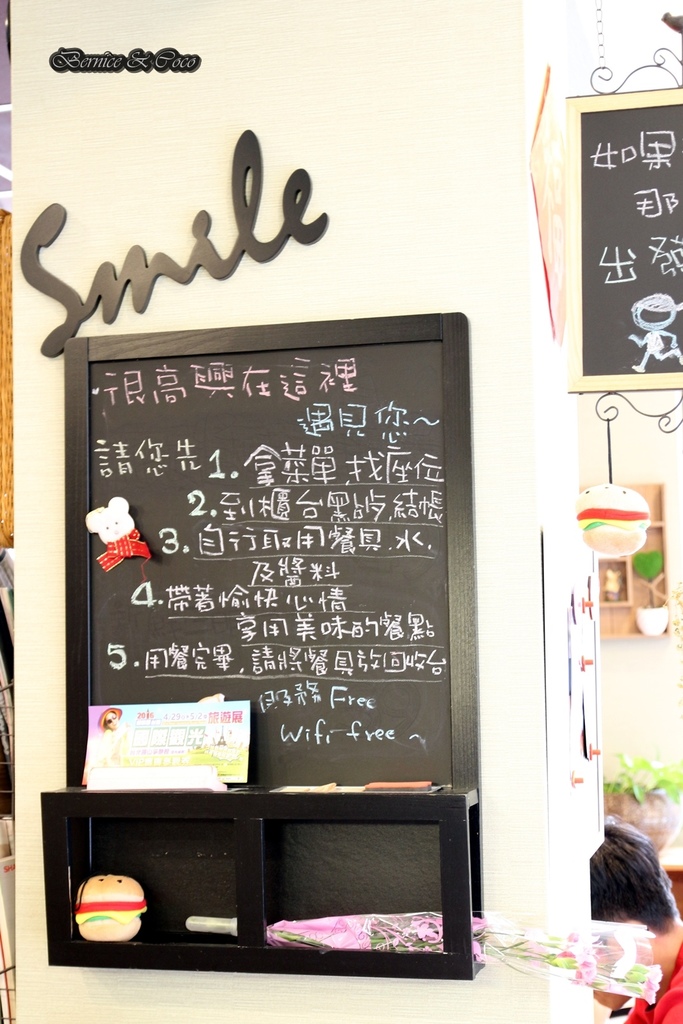 Bernice & Coco
Smile
很高興在這裡
遇見您~
請您先 1. 拿菜單,找座位
2. 到櫃台點餐,結帳
3. 自行取用餐具.水.
及醬料
4. 帶著愉快心情
享用美味的餐點
5. 用餐完畢,請將餐具放回收台
服務 Free
Wifi-free ~
2016 4/29 5/2 旅遊展
觀光
如果
那
出發